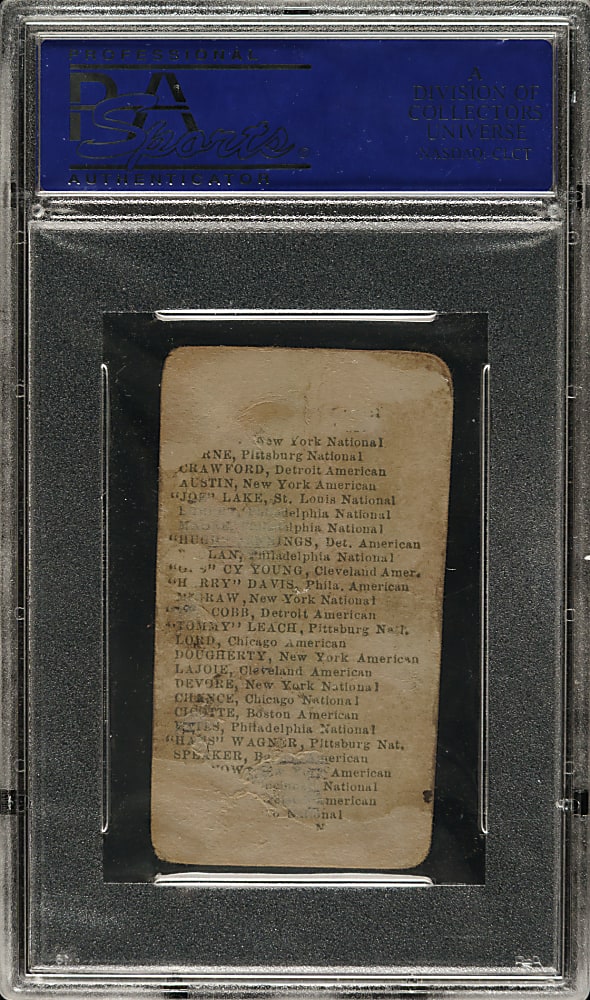 PROFESSIONAL
PSA
Sports
AUTHENTICATOR
A
DIVISION OF
COLLECTORS
UNIVERSE
NASDAQ: CLCT
New York National
RNE, Pittsburg National
CRAWFORD, Detroit American
AUSTIN, New York American
"JOE" LAKE, St. Louis National
delphia National
lphia National
INGS, Det. American
LAN, Philadelphia National
CY YOUNG, Cleveland Amer.
"H RRY" DAVIS, Phila. American
RAW, New York National
COBB, Detroit American
"TOMMY" LEACH, Pittsburg Nat.
LORD, Chicago American
DOUGHERTY, New York American
LAJOIE, Cleveland American
DEVORE, New York National
CHANCE, Chicago National
CICOTTE, Boston American
Philadelphia National
"HANS" WAGNER, Pittsburg Nat.
SPEAKER, B merican
OW American
National
merican
o National
N
PSA